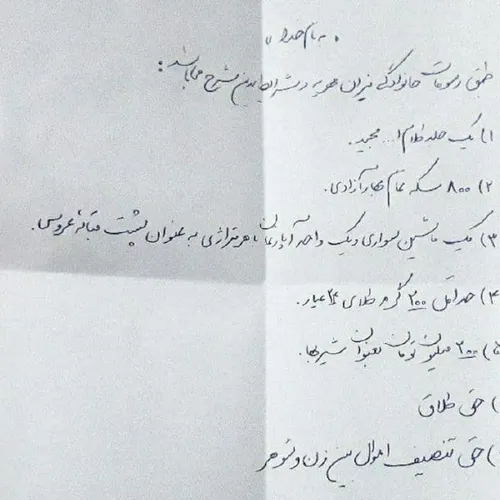 « به نام خدا »
طبق رسومات خانوادگی میزان مهریه و شرایط بدین شرح می‌باشد:
۱) یک جلد کلام ا... مجید.
۲) ۸۰۰ سکه تمام بهار آزادی.
۳) یک ماشین سواری و یک واحد آپارتمان با هر متراژی به عنوان پشت قباله عروس.
۴) حداقل ۲۰۰ گرم طلای ۲۴ عیار.
۵) ۲۰۰ میلیون تومان بعنوان شیربها.
) حق طلاق
) حق تنصیف اموال بین زن و شوهر